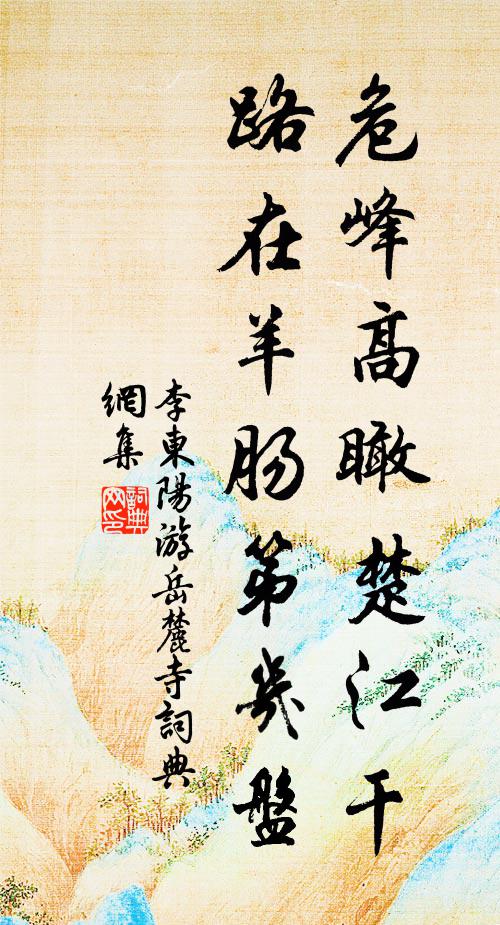 危峰高瞰楚江干
路在羊肠第几盤
李東陽游岳麓寺詞典
網集
詞典
网印